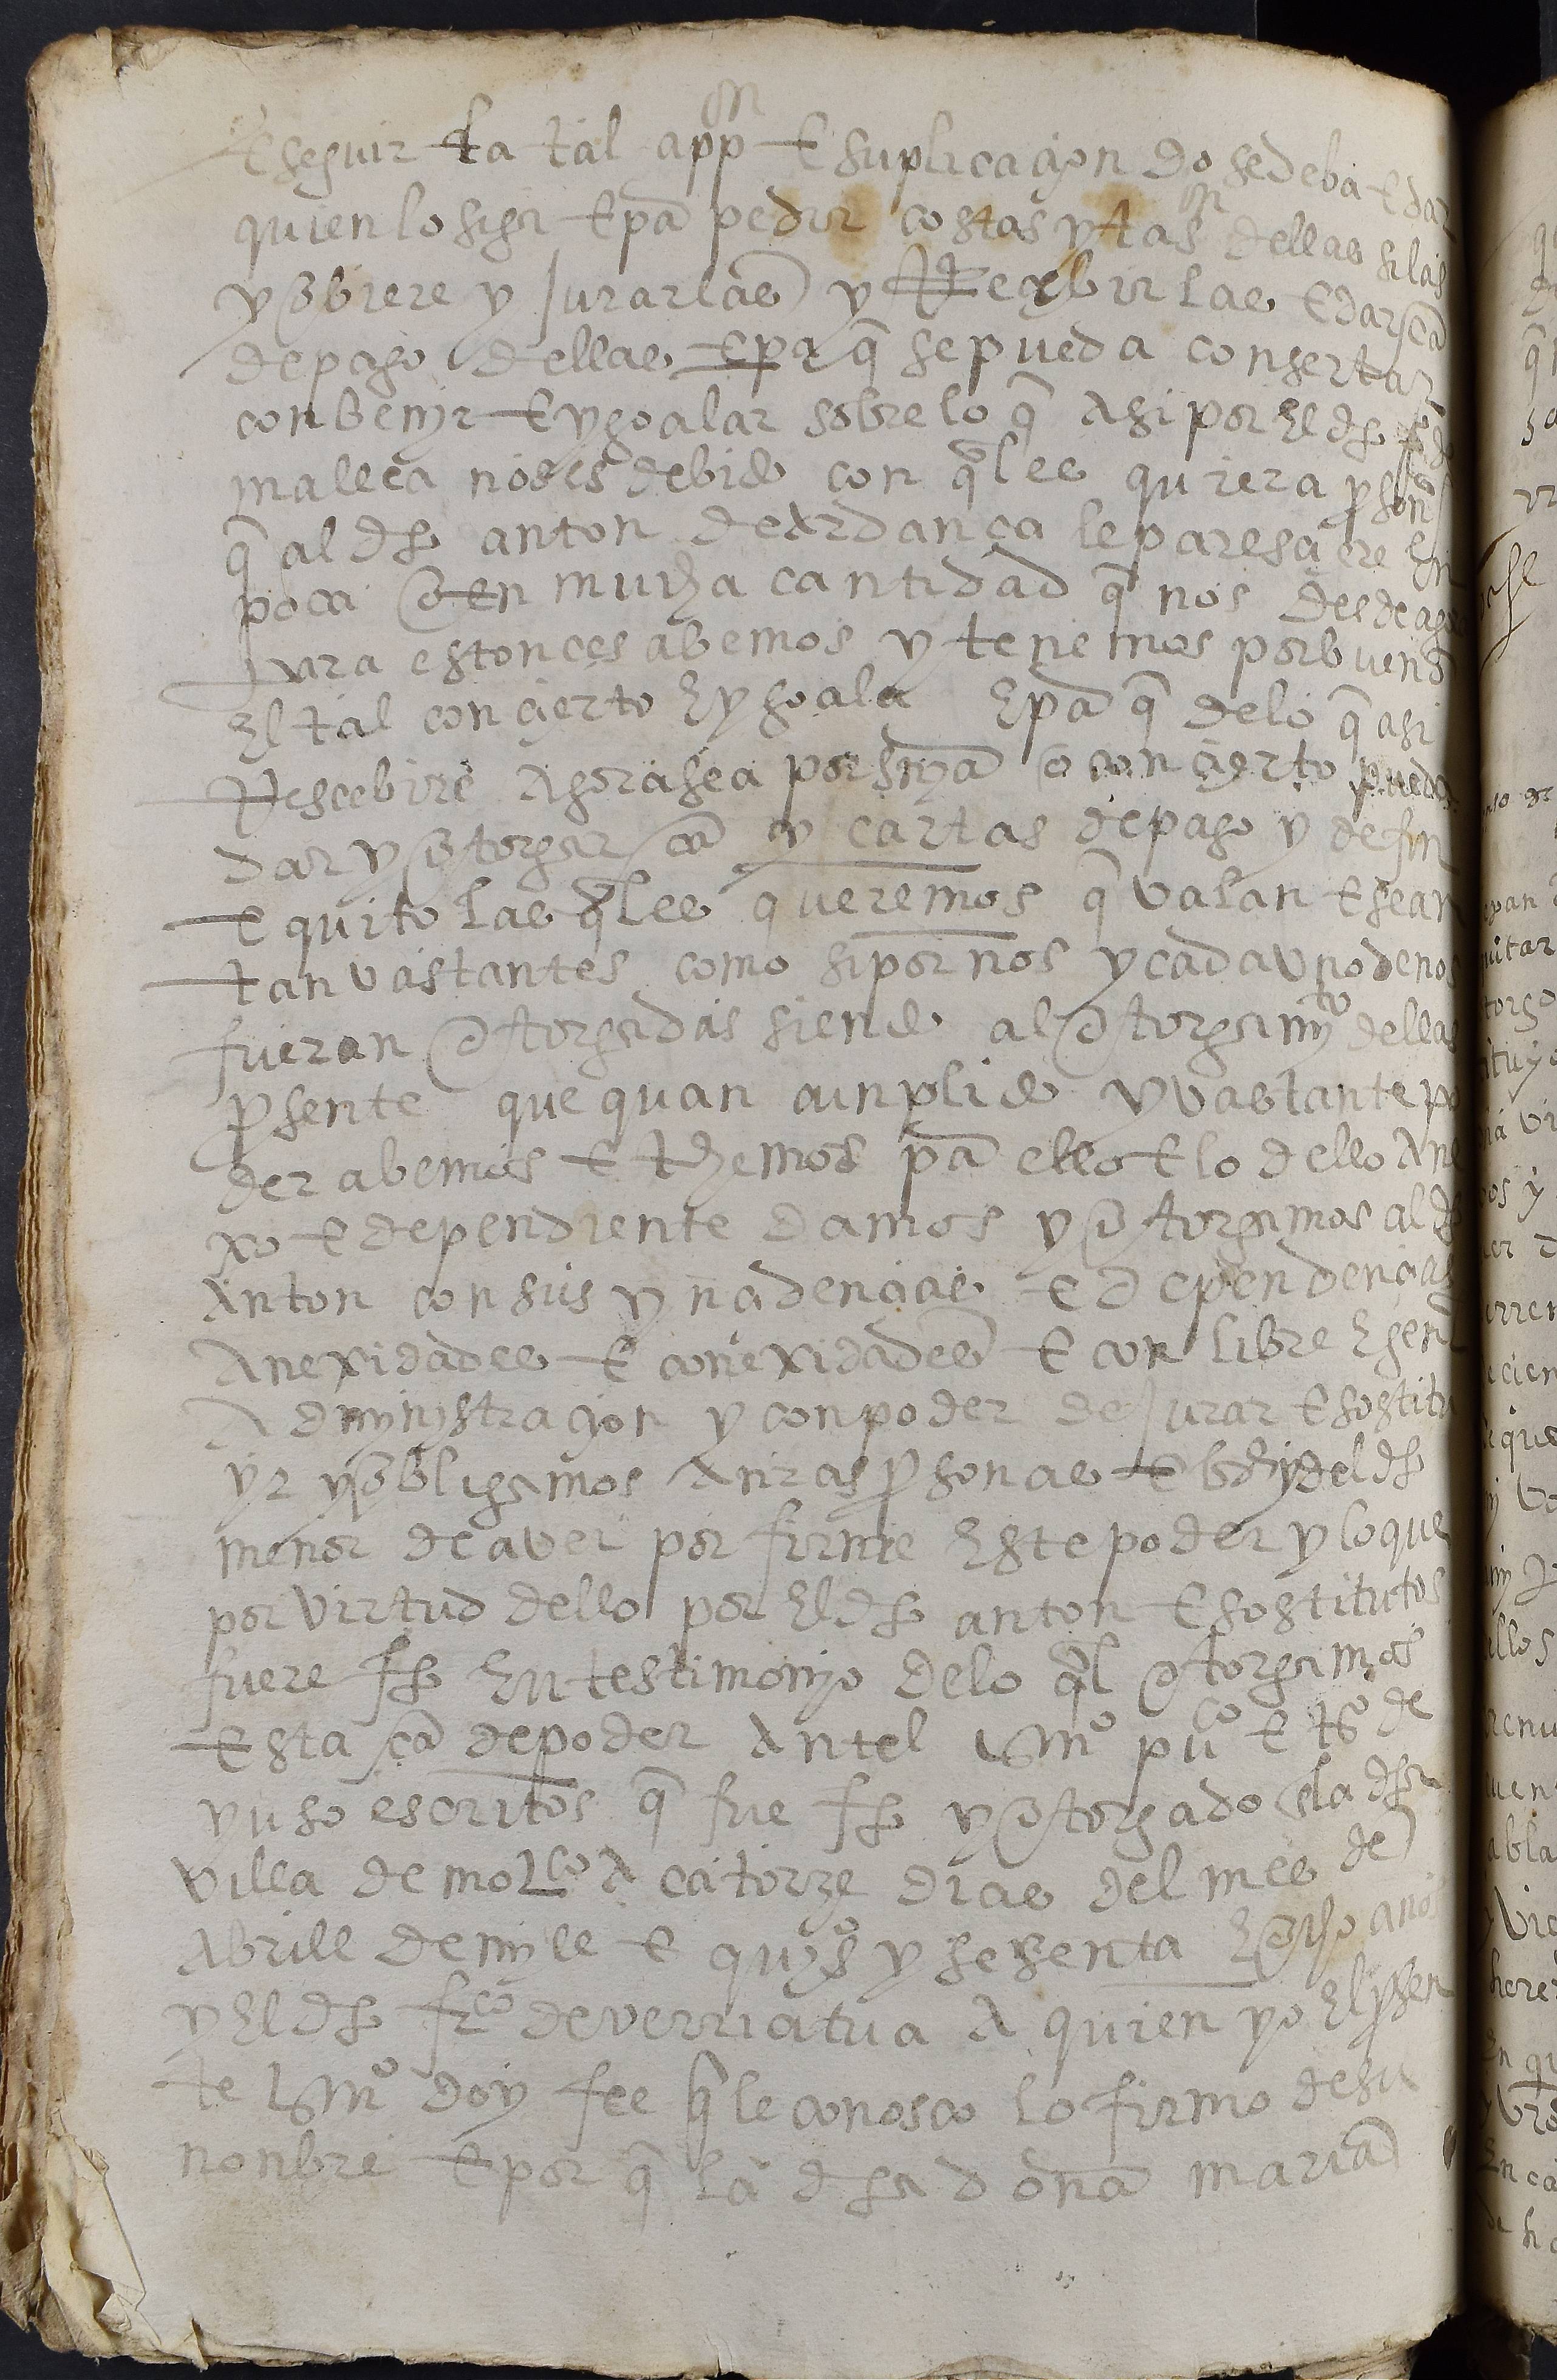 E seguir la tal appon E suplicaçion do se deba E dar
quien lo siga E pa pedir costas y tason dellas si las
y obiere y jurarlas y Reçibirlas E dar ca
de pago dellas E pa q se pueda consertar
conbenyr E ygoalar sobre lo q Asi por El dho
malega nos es debido con qles quiera psona
q al dho anton de Ardança le paresçiere En
poca o en mucha cantidad q nos desde agora
para estonces abemos y tenemos por bueno
El tal conçierto E ygoala E pa q de lo q asi
Rescebire Agora sea por snya o conçierto pueda
dar y otorgar ca y cartas de pago y de fin
E quito las qles queremos q valan E sean
tan vastantes como si por nos y cada vno de nos
fueran otorgadas siendo al otorgamyto dellas
psente que quan cunplido y vastante po
der abemos E thenemos pa ello E lo dello Ane
xo E dependiente damos y otorgamos al dho
Anton con sus ynçidençias E dependençias
Anexidades E conexidades E con libre E genl
Admynystraçion y con poder de jurar E sostitu
yr y obligamos A nras psonas E bs y del dho
menor de aver por firme Este poder y lo que
por virtud dello por El dho anton E sostitutos
fuere fho En testimonyo de lo ql otorgamos
Esta ca de poder Antel esno puco E tos de
yuso escritos q fue fho y otorgado En la dha
villa de mo A catorze dias del mes de
Abrill de myll E quyos y sesenta E ocho años
y El dho frco de verriatua A quien yo El psen
te esno doy fee q le conosco lo firmo de su
nonbre E por q la dha doña maria